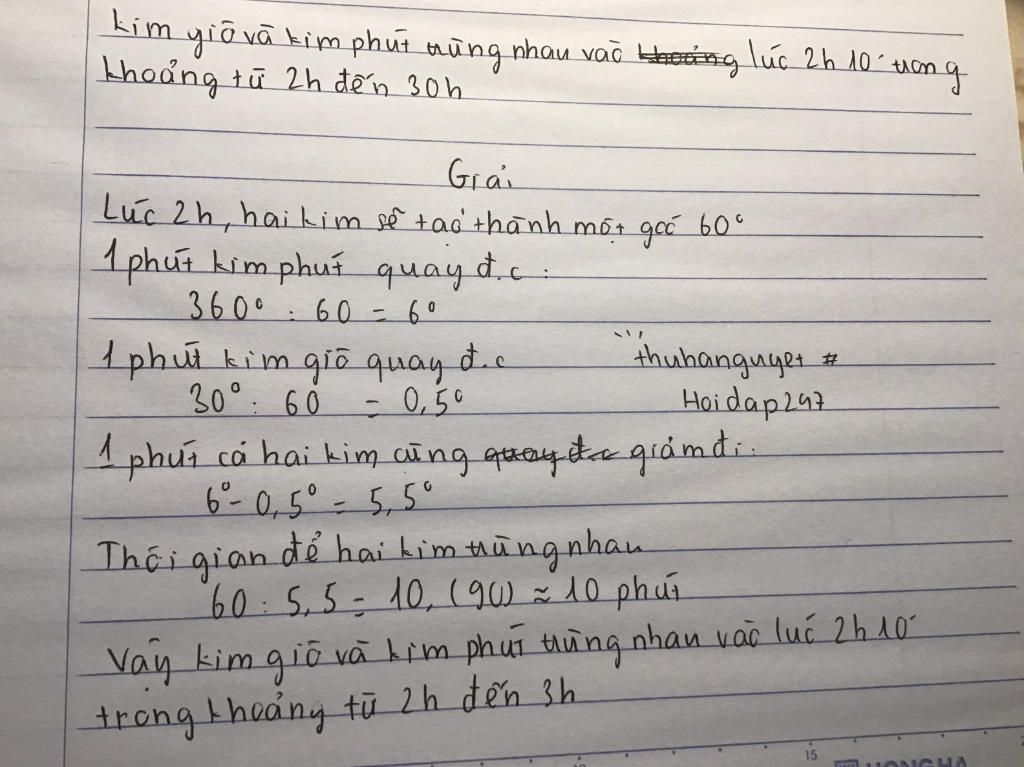 kim giờ và kim phút trùng nhau vào khoảng lúc 2h 10' trong
khoảng từ 2h đến 30h
Giải
Lúc 2h, hai kim sẽ tạo thành một góc 60°
1 phút kim phút quay đ.c :
360° : 60 = 6°
1 phút kim giờ quay đ.c
thuhanguyet #
30° : 60 = 0,5°
Hoidap247
1 phút cả hai kim cùng quay đ.c giảm đi:
6° - 0,5° = 5,5°
Thời gian để hai kim trùng nhau
60 : 5,5 = 10,(90) ≈ 10 phút
Vậy kim giờ và kim phút trùng nhau vào lúc 2h 10'
trong khoảng từ 2h đến 3h
15
HONG HA